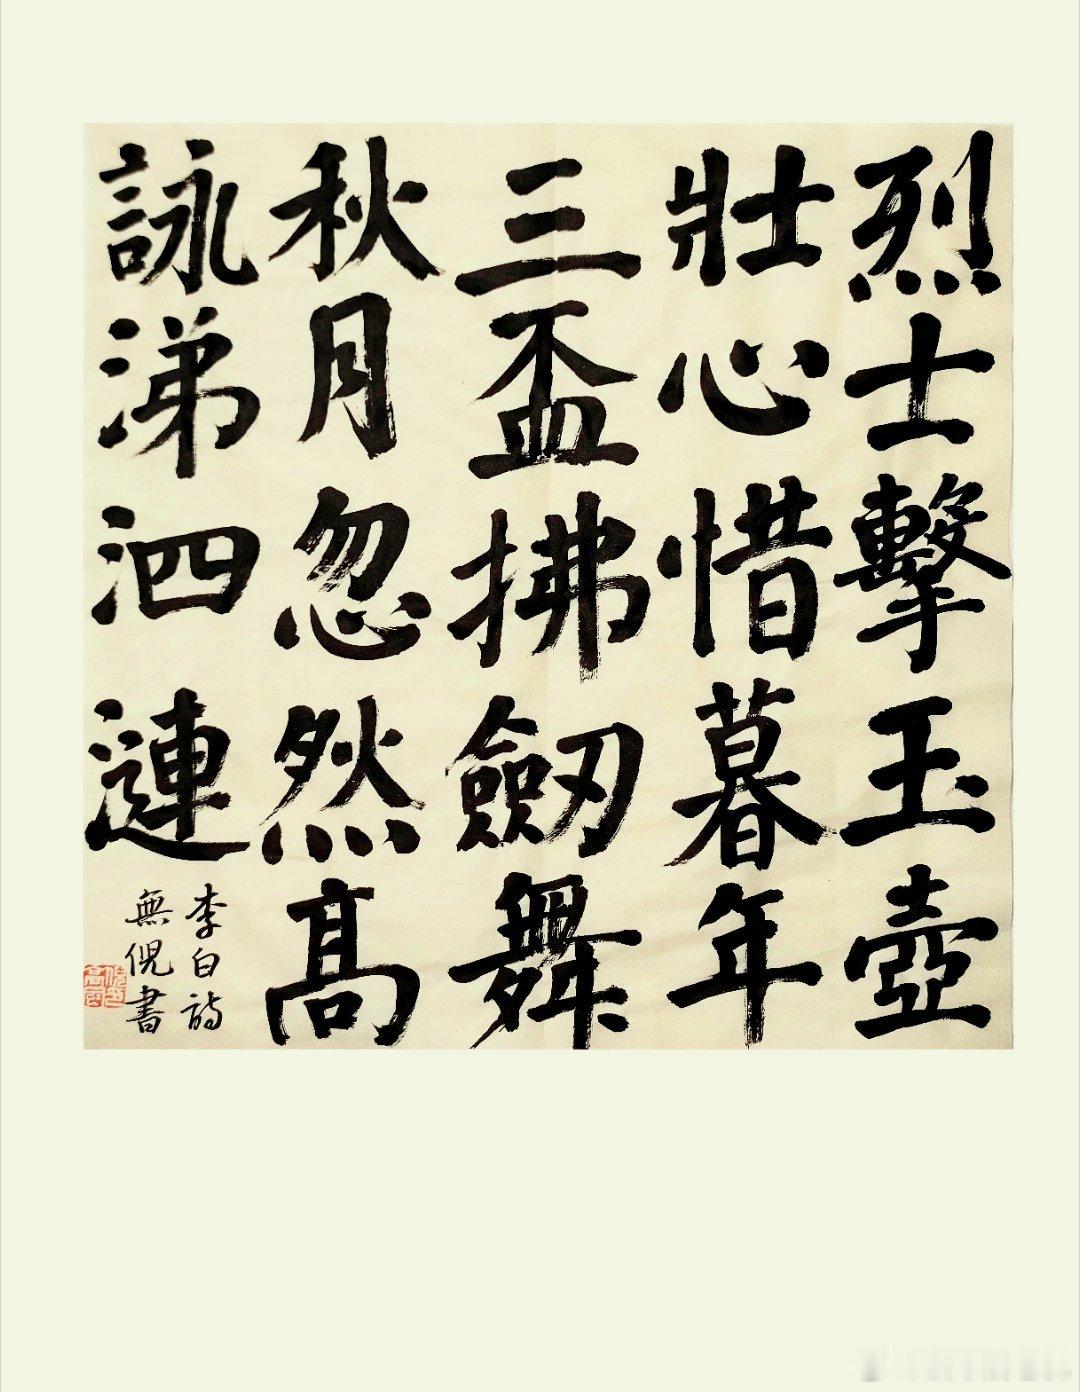 烈士擊玉壺
壯心惜暮年
三盃拂劒舞
秋月忽然高
詠涕泗漣
李白詩
無倪書